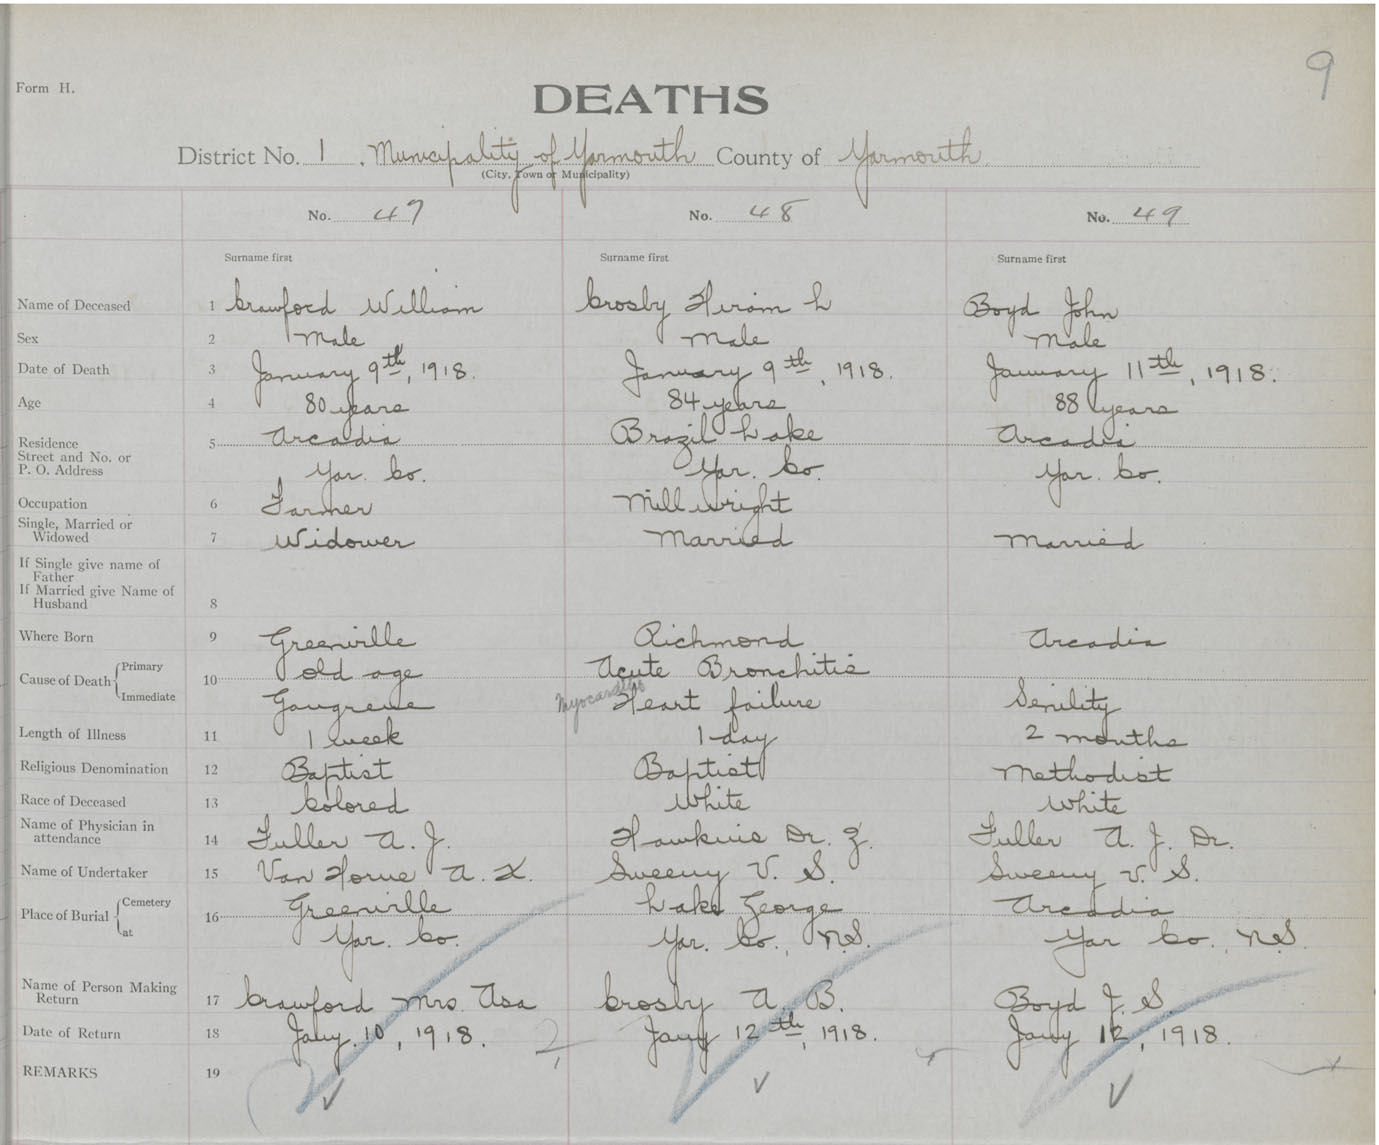 9
Form H.
DEATHS
District No. 1 , Municipality of Yarmouth County of Yarmouth
(City, Town or Municipality)
No. 47 No. 48 No. 49
Surname first Surname first Surname first
Name of Deceased 1 Crawford William Crosby Hiram L Boyd John
Sex 2 Male Male Male
Date of Death 3 January 9th, 1918. January 9th, 1918. January 11th, 1918.
Age 4 80 years 84 years 88 years
Residence 5 Arcadia Brazil Lake Arcadia
Street and No. or
P. O. Address Yar. Co. Yar. Co. Yar. Co.
Occupation 6 Farmer Mill wright
Single, Married or
Widowed 7 Widower Married Married
If Single give name of
Father
If Married give Name of
Husband 8
Where Born 9 Greenville Richmond Arcadia
Cause of Death { Primary 10 old age Acute Bronchitis
Immediate Gangrene Myocarditis Heart failure Senility
Length of Illness 11 1 week 1 day 2 months
Religious Denomination 12 Baptist Baptist Methodist
Race of Deceased 13 Colored White White
Name of Physician in
attendance 14 Fuller A. J. Hawkins Dr. Z. Fuller A. J. Dr.
Name of Undertaker 15 Van Horne A. K. Sweeny V. S. Sweeny V. S.
Place of Burial { Cemetery 16 Greenville Lake George Arcadia
at Yar. Co. Yar. Co., N.S. Yar Co., N.S.
Name of Person Making
Return 17 Crawford Mrs. Asa Crosby A. B. Boyd J. S
Date of Return 18 Jany. 10, 1918. Jany 12th, 1918. Jany 12, 1918.
REMARKS 19